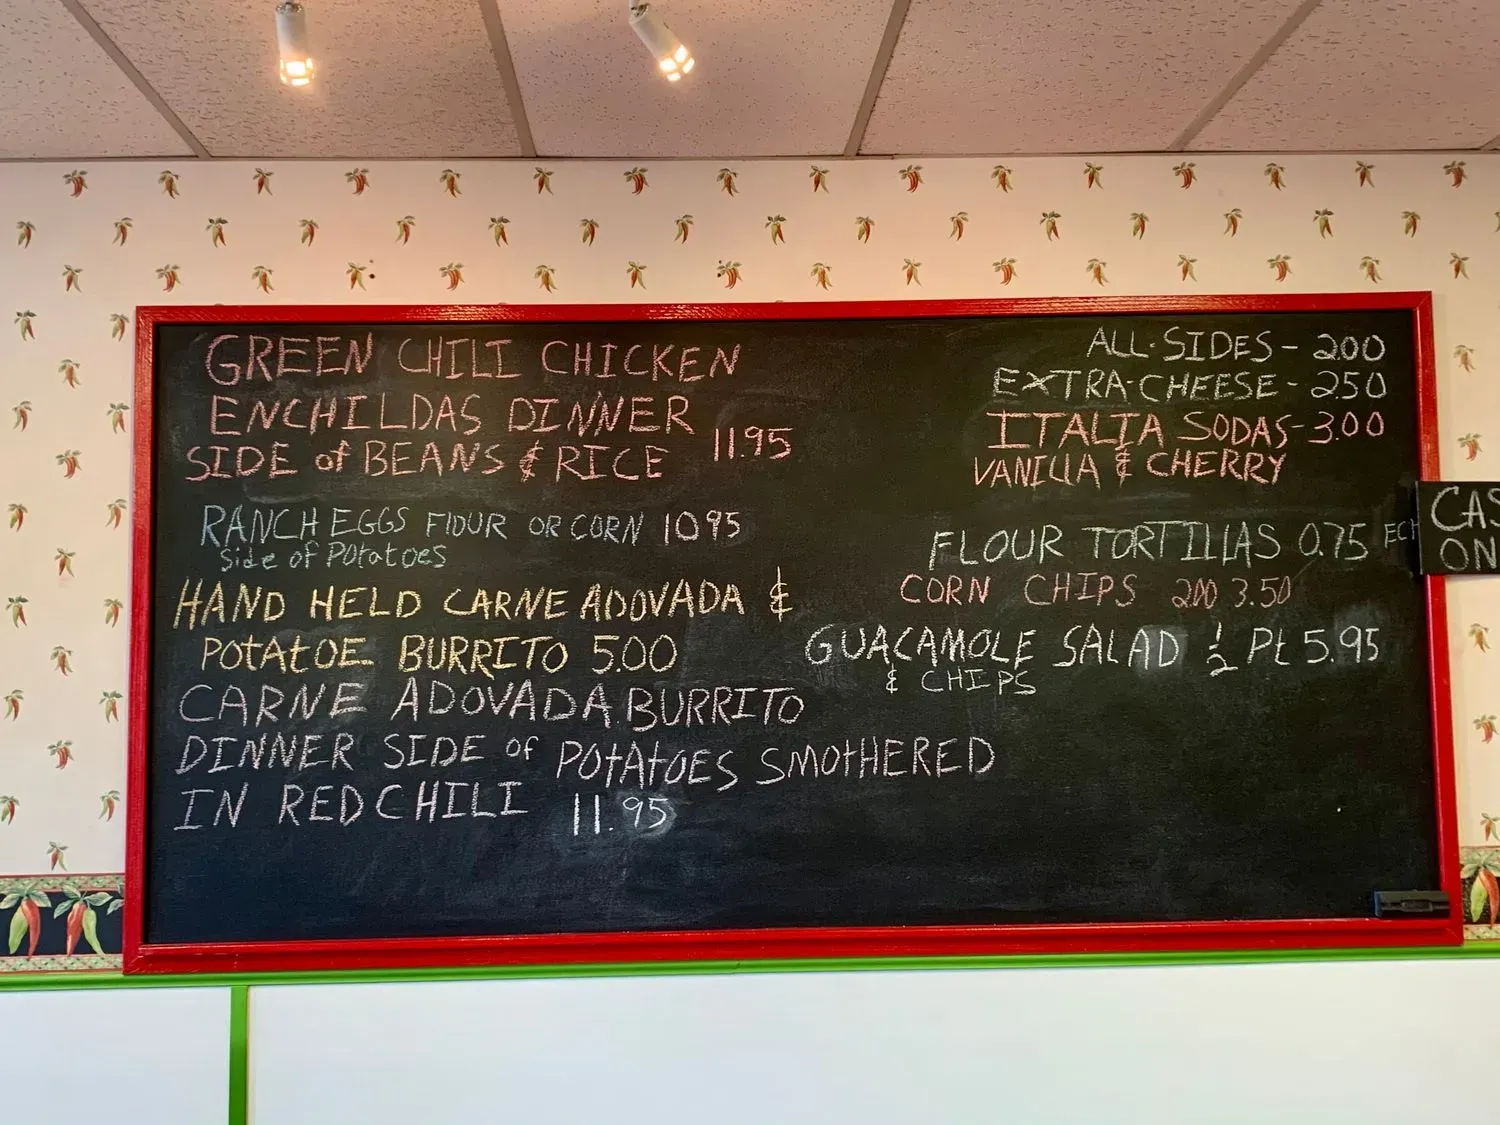 GREEN CHILI CHICKEN
ENCHILDAS DINNER
SIDE of BEANS & RICE 11.95
RANCH EGGS FLOUR OR CORN 10 95
side of Potatoes
HAND HELD CARNE ADOVADA &
POTATOE BURRITO 5.00
CARNE ADOVADA BURRITO
DINNER SIDE of POTATOES SMOTHERED
IN RED CHILI 11.95
ALL-SIDES - 2.00
EXTRA-CHEESE - 2.50
ITALIA SODAS - 3.00
VANILLA & CHERRY
FLOUR TORTILLAS 0.75 ECH
CORN CHIPS 2.00 3.50
GUACAMOLE SALAD ½ Pt 5.95
& CHIPS
CAS
ON